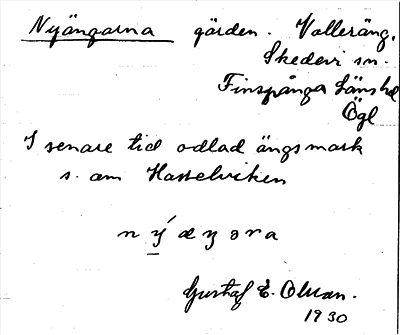 Nyängarna gärden. Valleräng,
Skedevi sn.
Finspånga Länshd
Ögl
I senare tid odlad ängsmark
s. om Hasselviken
n ý æ ŋ ə r a
Gustaf E. Olsson.
1930